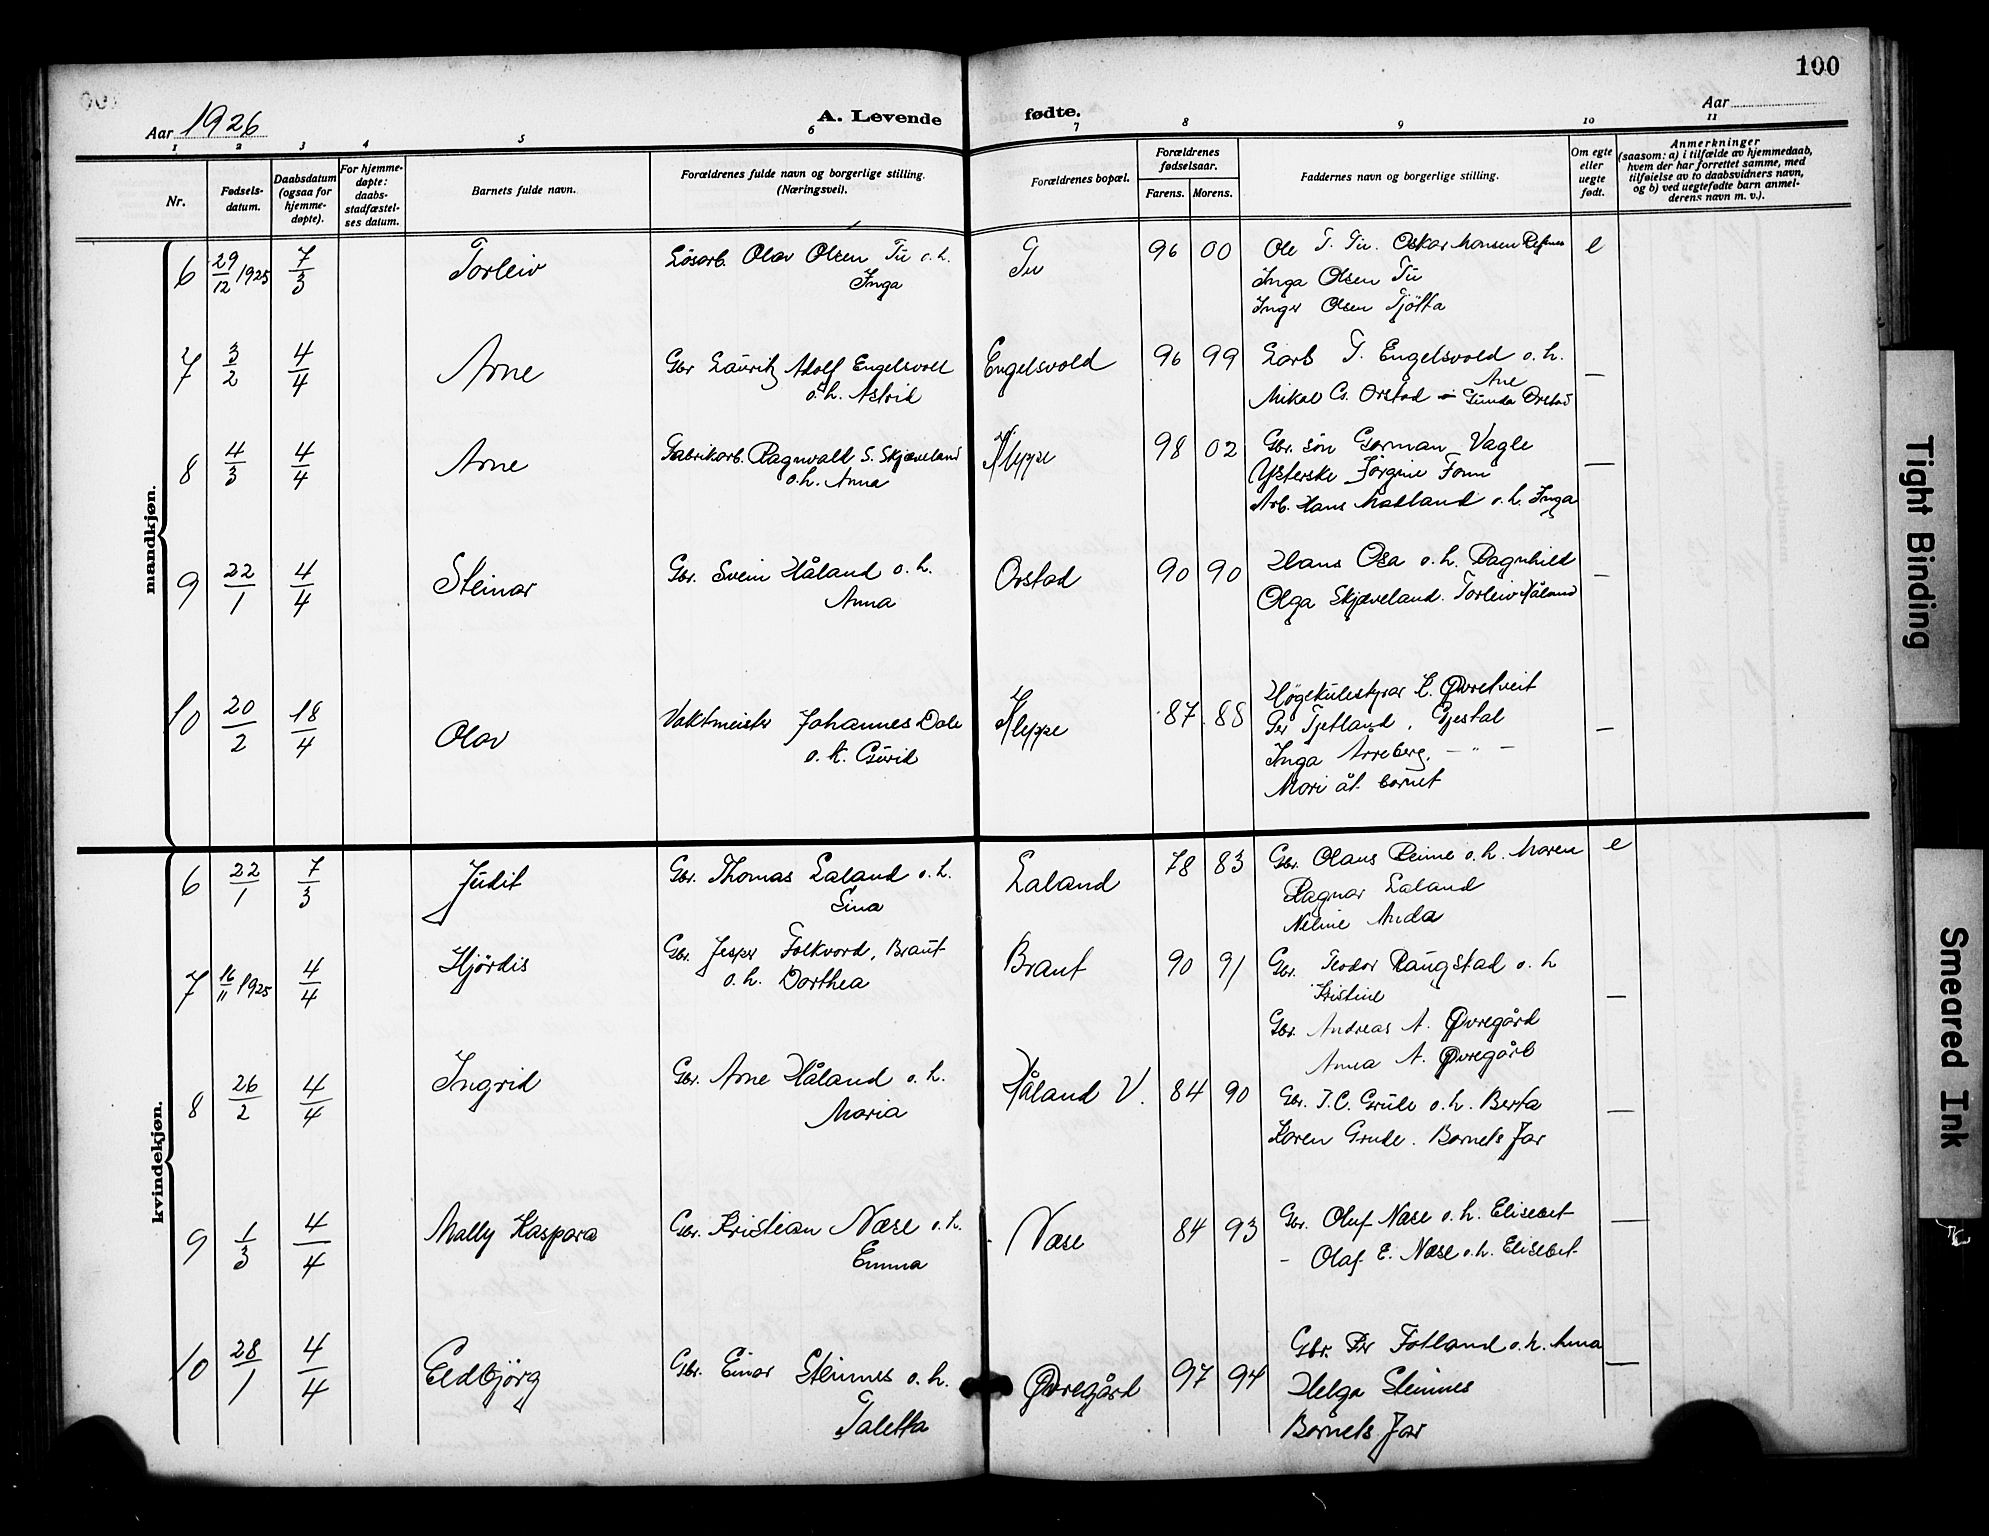 100
Aar 1926
A. Levende fødte.
Aar
1 2 3 4 5 6 7 8 9 10 11
Nr.
Fødsels-
datum.
Daabsdatum
(ogsaa for
hjemme-
døpte).
For hjemme-
døpte:
daabs-
stadfæstel-
ses datum.
Barnets fulde navn.
Forældrenes fulde navn og borgerlige stilling.
(Næringsvei).
Forældrenes bopæl.
Forældrenes
fødselsaar.
Farens. Morens.
Faddernes navn og borgerlige stilling.
Om egte
eller
uegte
født.
Anmerkninger
(saasom: a) i tilfælde av hjemmedaab,
hvem der har forrettet samme, med
tilføielse av to daabsvidners navn,
og b) ved uegtefødte barn anmel-
derens navn m. v.).
mandkjøn.
6 29/12 1925 7/3 Torleiv Løsarb. Olav Olsen Tu o. h. Tu 96 00 Ole T. Tu. Oskar Monsen Refsnes e
Inga Inga Olsen Tu
Inger Olsen Tjötta
7 3/2 4/4 Arne Gbr Lauritz Adolf Engelsvoll Engelsvold 96 99 Lars T. Engelsvold o. h. —
o. h. Astrid Ane
Mikal G. Orstad - Gunda Orstad
8 4/3 4/4 Arne Fabrikarb. Ragnvald S. Skjæveland Kleppe 98 02 Gbr. søn Gorman Vagle —
o. h. Anna Ysterske Jörgine Fonn
Arb. Hans Madland o. h. Inga
9 22/1 4/4 Steinar Gbr. Svein Håland o. h. Orstad 90 90 Hans Osa o. h. Ragnhild —
Anna Olga Skjæveland. Torleiv Håland
10 20/2 18/4 Olav Vaktmeister Johannes Dale Kleppe 87 88 Høgskulestyrar L. Øvretveit —
o. k. Gurid Per Tjetland, Gjestal
Inga Arreberg. — " —
Mori åt barnet
kvindekjøn.
6 22/1 7/3 Judit Gbr. Thomas Laland o. h. Laland 78 83 Gbr. Olaus Reime o. h. Maren e
Sina Ragnar Laland
Neline Anda
7 16/11 1925 4/4 Hjördis Gbr. Jesper Folkvord, Braut Braut 90 91 Gbr. Teodor Raugstad o. h —
o. h. Dorthea Kristine
Gbr. Andreas A. Øvregård
Anna A. Øvregård
8 26/2 4/4 Ingrid Gbr. Arne Håland o. h. Håland V. 84 90 Gbr. T. C. Grude o. h. Berta —
Maria Karen Grude. Barnets far
9 1/3 4/4 Mally Kaspara Gbr. Kristian Næse o. h. Næse 84 93 Gbr. Oluf Næse o. h. Elisebet —
Emma - Olaf E. Næse o. h. Elisebet
10 28/1 4/4 Eldbjörg Gbr. Einar Steinnes o. h. Øvregård 97 94 Gbr. Per Fotland o. h. Anna —
Taletta Helga Steinnes
Barnets far
Tight Binding
Smeared Ink